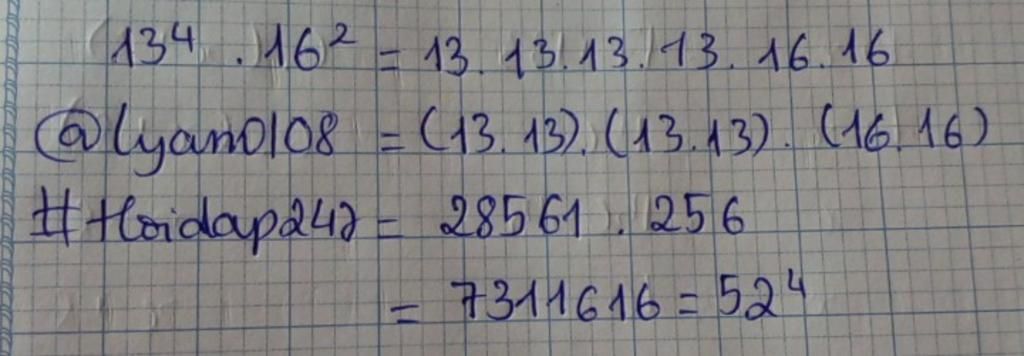 13⁴ . 16² = 13. 13. 13. 13. 16. 16
@lyan0108 = (13. 13). (13. 13). (16. 16)
#Hoidap247 = 28561 . 256
= 7311616 = 52⁴